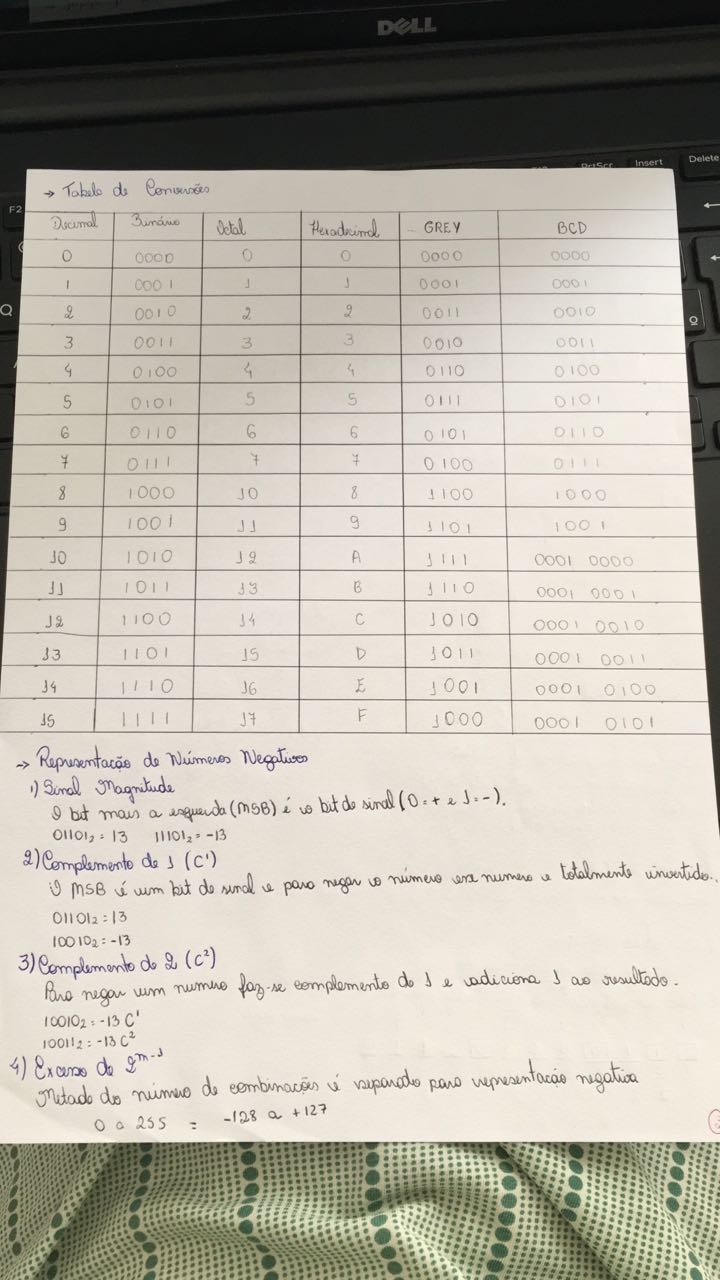 DELL
PrtScr Insert Delete
F2
Q
→ Tabela de Conversões
Decimal Binário Octal Hexadecimal GREY BCD
0 0000 0 0 0000 0000
1 0001 1 1 0001 0001
2 0010 2 2 0011 0010
3 0011 3 3 0010 0011
4 0100 4 4 0110 0100
5 0101 5 5 0111 0101
6 0110 6 6 0101 0110
7 0111 7 7 0100 0111
8 1000 10 8 1100 1000
9 1001 11 9 1101 1001
10 1010 12 A 1111 0001 0000
11 1011 13 B 1110 0001 0001
12 1100 14 C 1010 0001 0010
13 1101 15 D 1011 0001 0011
14 1110 16 E 1001 0001 0100
15 1111 17 F 1000 0001 0101
→ Representação de Números Negativos
1) Sinal Magnitude
O bit mais a esquerda (MSB) é o bit de sinal (0=+ e 1=-).
01101₂ = 13 11101₂ = -13
2) Complemento de 1 (C¹)
O MSB é um bit de sinal e para negar o número esse numero e totalmente invertido.
01101₂ = 13
10010₂ = -13
3) Complemento de 2 (C²)
Para negar um numero faz-se complemento de 1 e adiciona 1 ao resultado.
10010₂ = -13 C¹
10011₂ = -13 C²
4) Excesso de 2ᵐ⁻¹
Metade do número de combinações é separado para representação negativa
0 a 255 = -128 a +127